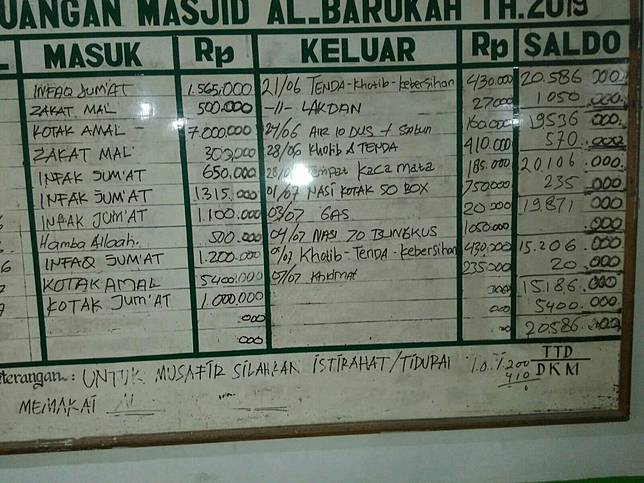 UANGAN MASJID AL-BAROKAH TH.2019
MASUK Rp KELUAR Rp SALDO
INFAQ JUM'AT 1.565.000 21/06 TENDA-Khotib-kebersihan 430.000 20.586 000
ZAKAT MAL 500.000 -11- LAKDAN 27000 1050 .000
KOTAK AMAL 7.000.000 24/06 AIR 10 DUS + Sabun 160.000 19536 .000
ZAKAT MAL 300.000 28/06 Khotib & TENDA 410.000 570 .000
INFAK JUM'AT 650.000 Tempat kaca mata 185.000 20.106 .000
INFAK JUM'AT 1315.000 01/07 NASI KOTAK 50 BOX 750000 235 .000
INFAK JUM'AT 1.100.000 03/07 GAS 20 000 19.871 .000
Hamba Allaah. 500.000 04/07 NASI 70 BUNGKUS 1050.000 .000
6 INFAQ JUM'AT 1.200.000 Khotib-TENDA-kebersihan 430.000 15.206 .000
KOTAK AMAL 5400.000 07/07 235000 20 .000
KOTAK Jum'AT 1.000.000 000 15.186 .000
.000 000 5400. 000
.000 20.586 .000
eterangan : UNTUK MUSAFIR SILAHKAN ISTIRAHAT/TIDURAI TTD
MEMAKAI DKM